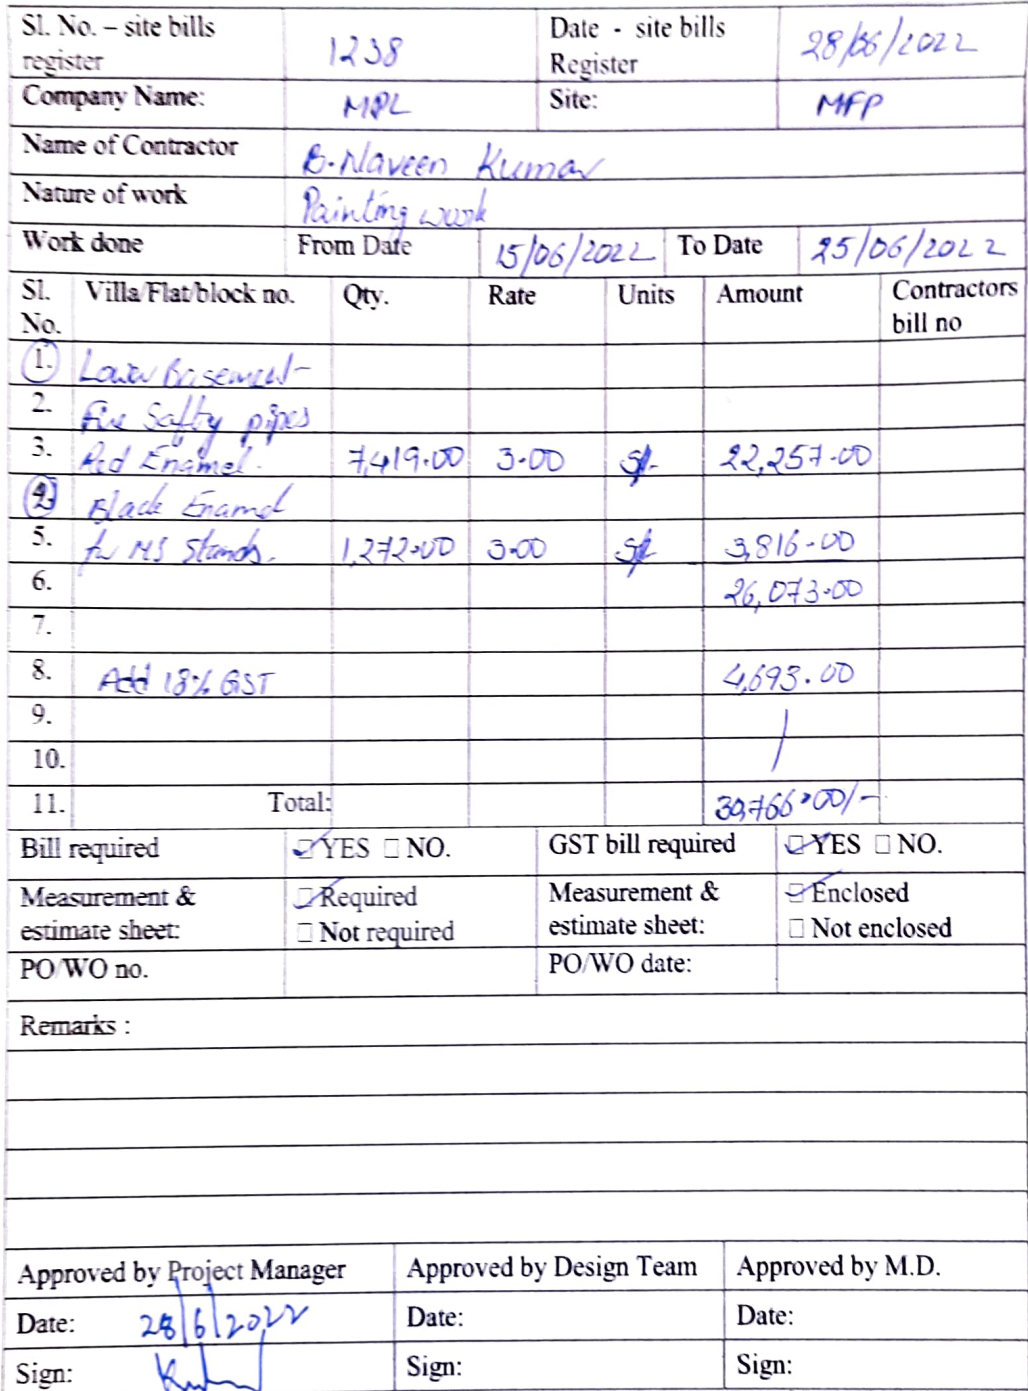 Sl. No. – site bills register 1238 Date - site bills Register 28/06/2022
Company Name: MPL Site: MFP
Name of Contractor B. Naveen Kumar
Nature of work Painting work
Work done From Date 15/06/2022 To Date 25/06/2022
Sl. No. Villa/Flat/block no. Qty. Rate Units Amount Contractors bill no
1. Lower Basement-
2. Fire Safty pipes
3. Red Enamel. 7,419.00 3.00 22,257.00
4. Black Enamel
5. for MS Stands. 1,272.00 3.00 3,816.00
6. 26,073.00
7.
8. Add 18% GST 4,693.00
9.
10.
11. Total: 30,766.00/-
Bill required YES NO. GST bill required YES NO.
Measurement & estimate sheet: Required Not required Measurement & estimate sheet: Enclosed Not enclosed
PO/WO no. PO/WO date:
Remarks :
Approved by Project Manager Approved by Design Team Approved by M.D.
Date: 28/6/2022 Date: Date:
Sign: Sign: Sign: